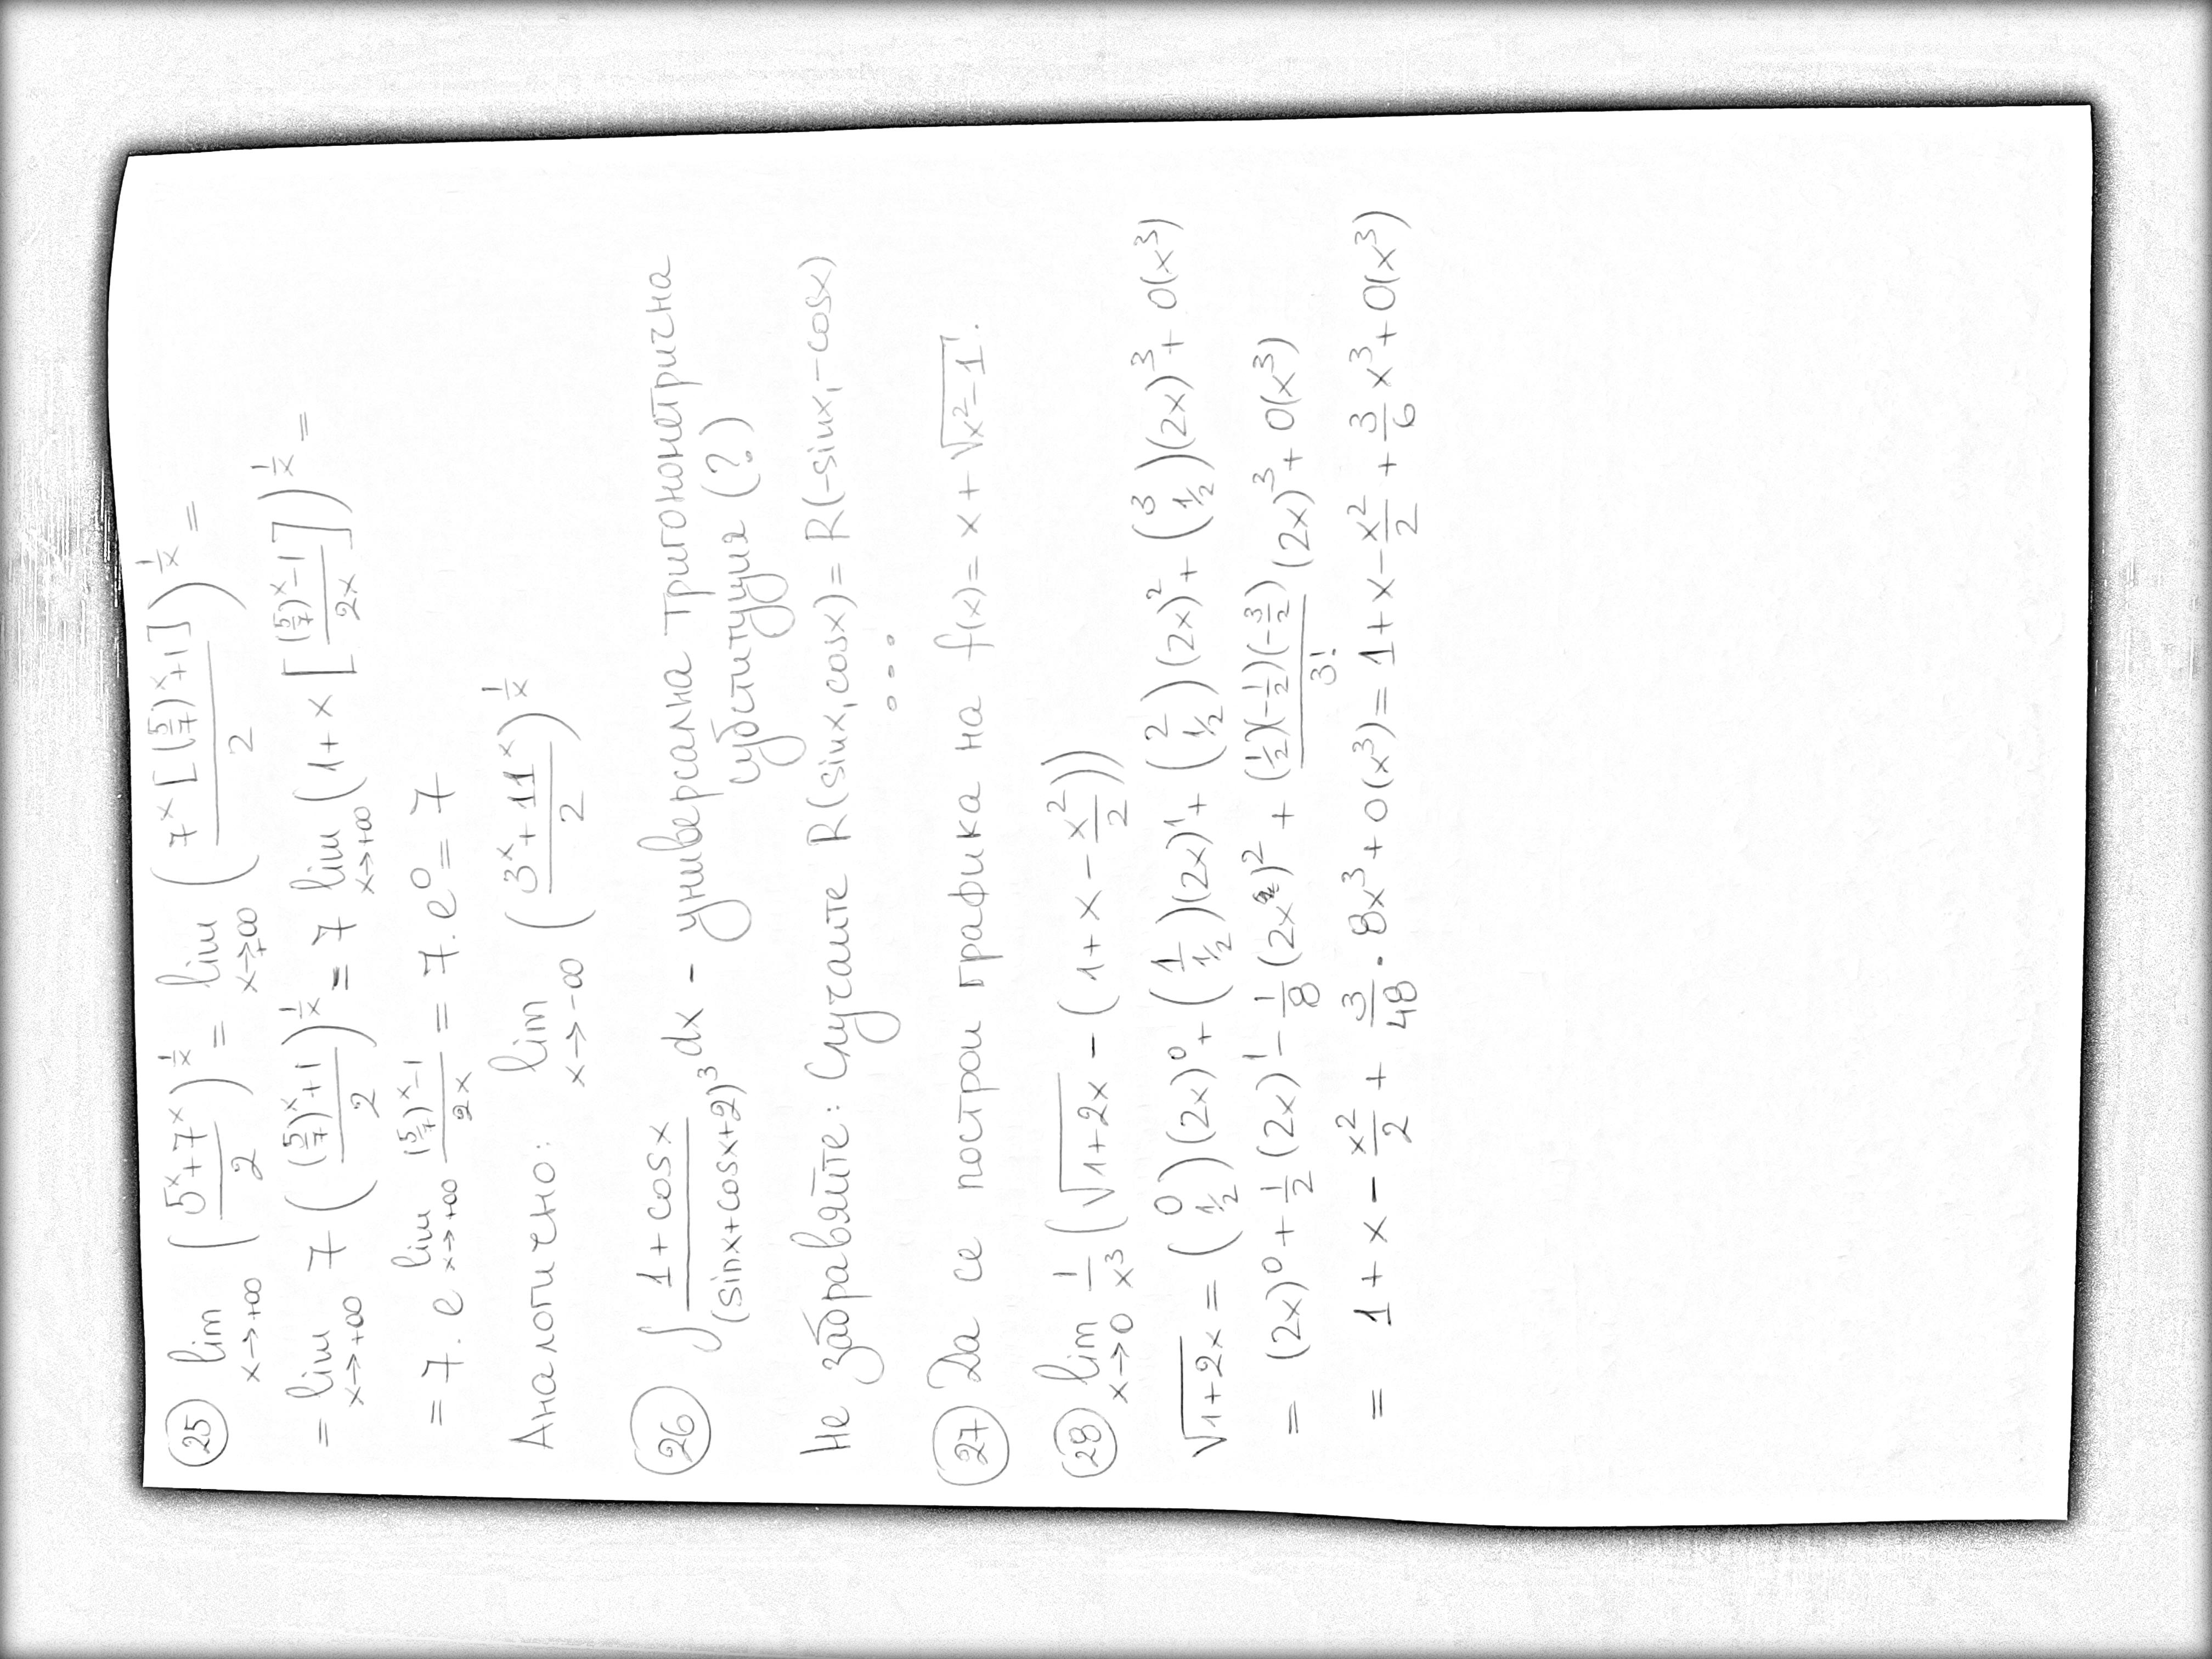 25 lim x→+∞ ((5^x+7^x)/2)^(1/x) = lim x→+∞ ((7^x[(5/7)^x+1])/2)^(1/x) =
= lim x→+∞ 7(((5/7)^x+1)/2)^(1/x) = 7 lim x→+∞ (1+x[((5/7)^x-1)/2x])^(1/x) =
= 7. e^(lim x→+∞ ((5/7)^x-1)/2x) = 7. e^0 = 7
Аналогично: lim x→-∞ ((3^x+11^x)/2)^(1/x)
26 ∫ (1+cosx)/(sinx+cosx+2)^3 dx - универсална тригонометрична
субституция (?)
Не забравяйте: Случаите R(sinx,cosx)= R(-sinx,-cosx)
...
27 Да се построи графика на f(x)= x+√(x²-1).
28 lim x→0 1/x³ (√(1+2x) - (1+x-x²/2))
√(1+2x) = (0 1/2)(2x)^0+(1 1/2)(2x)^1+(2 1/2)(2x)^2+(3 1/2)(2x)^3+ O(x³)
= (2x)^0+1/2(2x)^1-1/8(2x)^2+((1/2)(-1/2)(-3/2))/3! (2x)^3+ O(x³)
= 1+x-x²/2+3/48·8x³+O(x³)= 1+x-x²/2+3/6x³+O(x³)